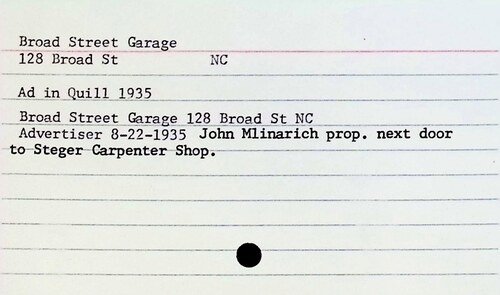 Broad Street Garage
128 Broad St NC
Ad in Quill 1935
Broad Street Garage 128 Broad St NC
Advertiser 8-22-1935 John Mlinarich prop. next door
to Steger Carpenter Shop.